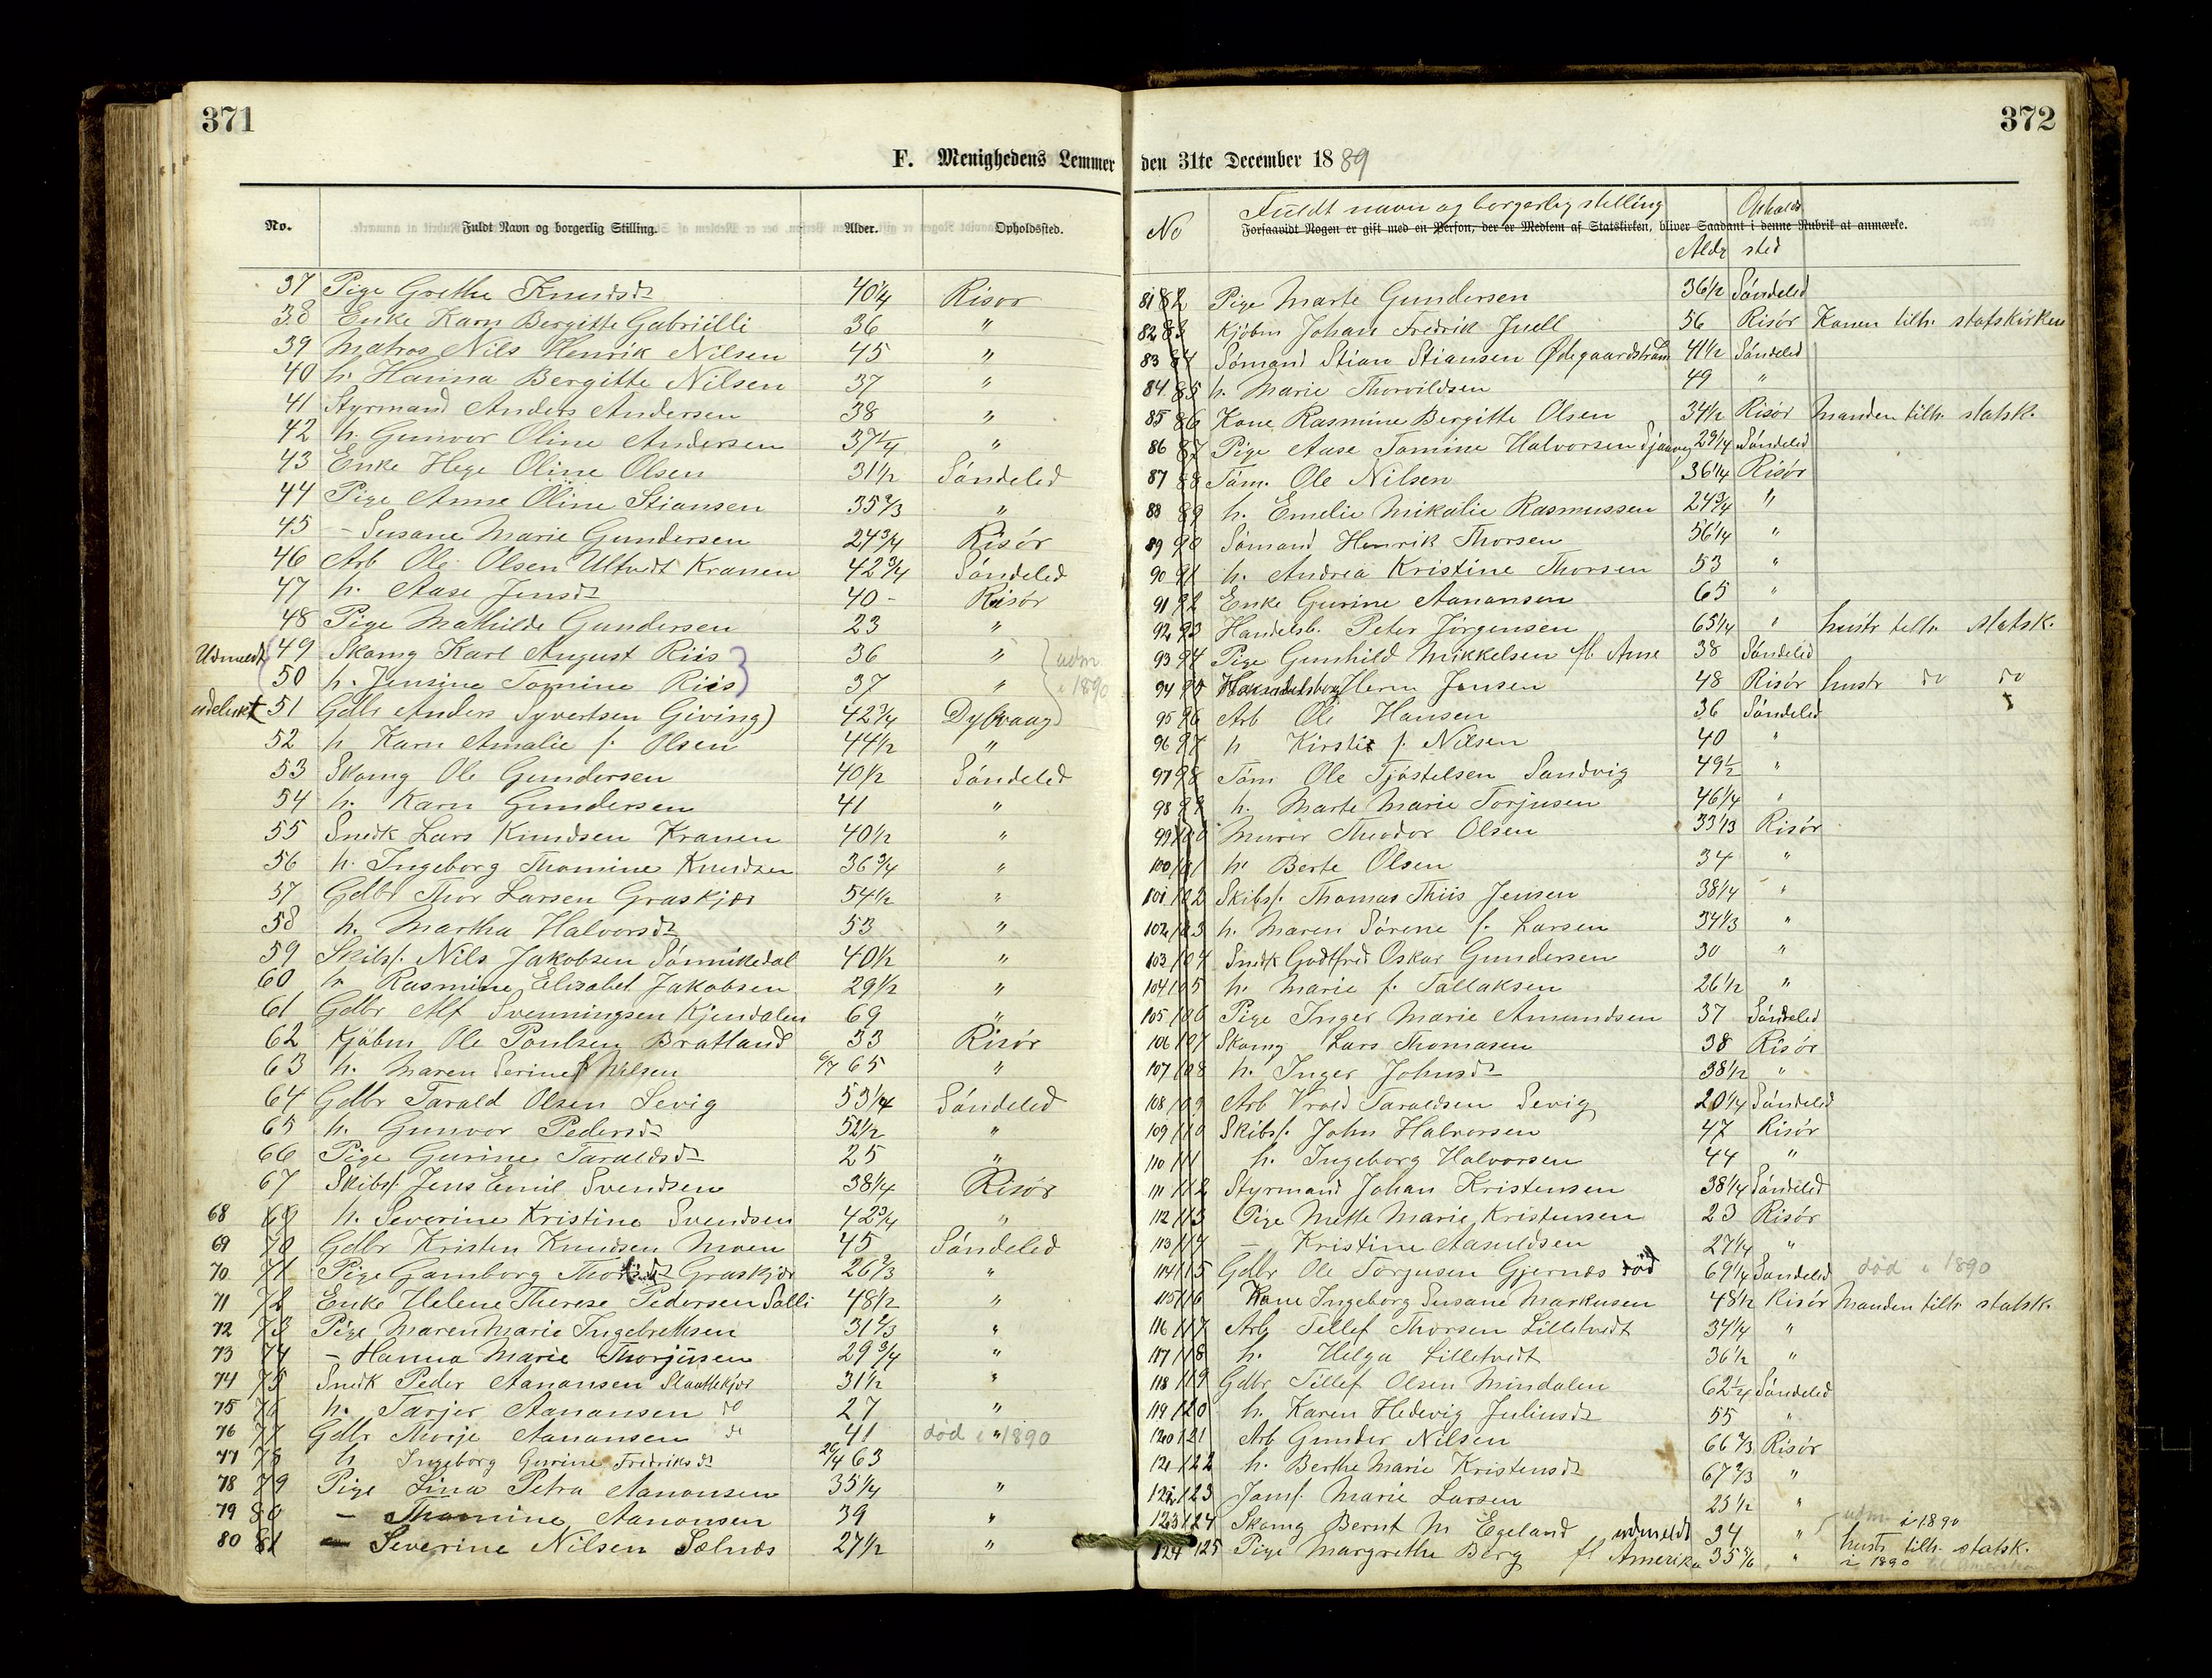 371
F. Menighedens Lemmer
No. Fuldt Navn og borgerlig Stilling. Alder. Opholdssted.
37 Pige Grethe Knudsdt 40 1/4 Risør
38 Enke Karn Bergitte Gabriilli 36 "
39 Matros Nils Henrik Nilsen 45 "
40 h. Hanna Bergitte Nilsen 37 "
41 Styrmand Anders Andersen 38 "
42 h. Gunvor Oline Andersen 37 1/4 "
43 Enke Hege Oline Olsen 31 1/2 Söndeled
44 Pige Anne Oline Stiansen 35 2/3 "
45 – Susane Marie Gundersen 24 3/4 Risör
46 Arb Ole Olsen Ultvedt Kranen 42 3/4 Söndeled
47 h. Aase Jensdt 40 - Risör
48 Pige Mathilde Gundersen 23 "
Udmeldt 49 Skomg Karl August Riis 36 " udm
50 h. Jensine Tomine Riis 37 " i 1890
udelukt 51 Gdbr Anders Syvertsen Giving) 42 3/4 Dybvaag
52 h Karn Amalie f. Olsen 44 1/2 "
53 Skomg Ole Gundersen 40 1/2 Söndeled
54 h. Karn Gundersen 41 "
55 Snedk Lars Knudsen Kranen 40 1/2 "
56 h. Ingeborg Thomine Knudsen 36 3/4 "
57 Gdbr Thor Larsen Graskjær 54 1/2 "
58 h. Martha Halvorsdt 53 "
59 Skibsf. Nils Jakobsen Sönnikedal 40 1/2 "
60 h Rasmine Elisabet Jakobsen 29 1/2 "
61 Gdbr Alf Svenningsen Kjendalen 69 "
62 Kjöbm Ole Poulsen Bratland 33 Risör
63 h. Maren Serine f Nilsen 6/7 65 "
64 Gdbr Tarald Olsen Sevig 53 1/4 Söndeled
65 h. Gunvor Pedersdt 52 1/2 "
66 Pige Gurine Taraldsdt 25 "
67 Skibsf. Jens Emil Svendsen 38 1/4 Risör
68 69 h. Severine Kristine Svendsen 42 3/4 "
69 70 Gdbr Kristen Knudsen Moen 45 Söndeled
70 71 Pige Gamborg Graskjær 26 2/3 "
71 72 Enke Helene Therese Pedersen Salli 48 1/2 "
72 73 Pige Maren Marie Ingebretsen 31 2/3 "
73 74 – Hanna Marie Thorjusen 29 3/4 "
74 75 Snedk Peder Aanonsen Slaattekjær 31 1/2 "
75 76 h. Tarjer Aanonsen do 27 "
76 77 Gdbr Thorje Aanonsen do 41 död i 1890
77 78 h Ingeborg Gurine Fredriksdt 26/4 63
78 79 Pige Lina Petra Aanonsen 35 1/4 "
79 80 – Thomine Aanonsen 39 "
80 81 – Severine Nilsen Sælnæs 27 1/2 "
372
den 31te December 1889
No Fuldt navn og borgerlig stilling Alder Opholdssted
Forsaavidt Nogen er gift med en Person, der er Medlem af Statskirken, bliver Saadant i denne Rubrik at anmærke.
81 82 Pige Marte Gundersen 36 1/2 Söndeled
82 83 Kjöbm Johan Fredrik Juell 56 Risör Konen tilh. statskirken
83 84 Sömand Stian Stiansen Ødegaardstrand 41 1/2 Söndeled
84 85 h. Marie Thorvildsen 49 "
85 86 Kone Rasmine Bergitte Olsen 34 1/2 Risör Manden tilh. statsk.
86 87 Pige Aase Tomine Halvorsen 29 1/4 Söndeled
87 88 Töm. Ole Nilsen 36 1/4 Risör
88 89 h. Emelie Mikalie Rasmussen 24 3/4 "
89 90 Sömand Henrik Thorsen 56 1/4 "
90 91 h. Andrea Kristine Thorsen 53 "
91 92 Enke Gurine Aanonsen 65 "
92 93 Handelsb. Peter Jörgensen 65 1/4 " hustr tilh. statsk.
93 94 Pige Gunhild Mikkelsen fl. Arne 38 Söndeled
94 95 Handelsborg Herm Jensen 48 Risör hustr do do
95 96 Arb Ole Hansen 36 Söndeled
96 97 h Kirstie f. Nilsen 40 "
97 98 Töm Ole Tjöstelsen Sandvig 49 1/2 "
98 99 h. Marte Marie Torjusen 46 1/4 "
99 100 Murer Theodor Olsen 33 1/3 Risör
100 101 h. Berte Olsen 34 "
101 102 Skibsf. Thomas Thiis Jensen 38 1/4 "
102 103 h. Maren Sörene f. Larsen 34 1/3 "
103 104 Snedk Godtfred Oskar Gundersen 30 "
104 105 h. Marie f. Tallaksen 26 1/2 "
105 106 Pige Inger Marie Amundsen 37 Söndeled
106 107 Skomg Lars Thomasen 38 Risör
107 108 h. Inger Johnsdt 38 1/2 "
108 109 Arb Vrold Taraldsen Sevig 20 1/4 Söndeled
109 110 Skibsf. John Halvorsen 47 Risör
110 111 h. Ingeborg Halvorsen 44 "
111 112 Styrmand Johan Kristensen 38 1/4 Söndeled
112 113 Pige Mette Marie Kristensen 23 Risör
113 114 – Kristine Aasuldsen 27 1/4 "
114 115 Gdbr Ole Torjusen Gjernæs död 69 1/4 Söndeled död i 1890
115 116 Kone Ingeborg Susane Markusen 48 1/2 Risör Manden tilh. statsk.
116 117 Arb Tellef Thorsen Lilletvedt 34 1/4 "
117 118 h. Helga Lilletvedt 36 1/2 "
118 119 Gdbr Tellef Olsen Mindalen 62 1/4 Söndeled
119 120 h. Karen Hedevig Juliusdt 55 "
120 121 Arb Gunder Nilsen 66 2/3 Risör
121 122 h. Berthe Marie Kristensdt 67 2/3 "
122 123 Jomf. Marie Larsen 23 1/2 "
123 124 Skomg Bernt M Egeland udmeldt 34 " udm. i 1890 hustr tilh. statsk.
124 125 Pige Margrethe Berg fl Amerika 35 5/6 " i 1890